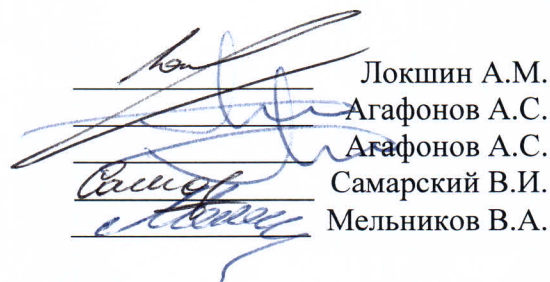 Локшин А.М.
Агафонов А.С.
Агафонов А.С.
Самарский В.И.
Мельников В.А.